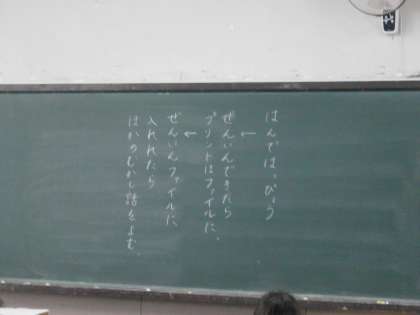 はんではっぴょう
←
ぜんいんできたら
プリントはファイルに、
←
ぜんいんファイルに
入れれたら
ほかのむかし話をよむ。